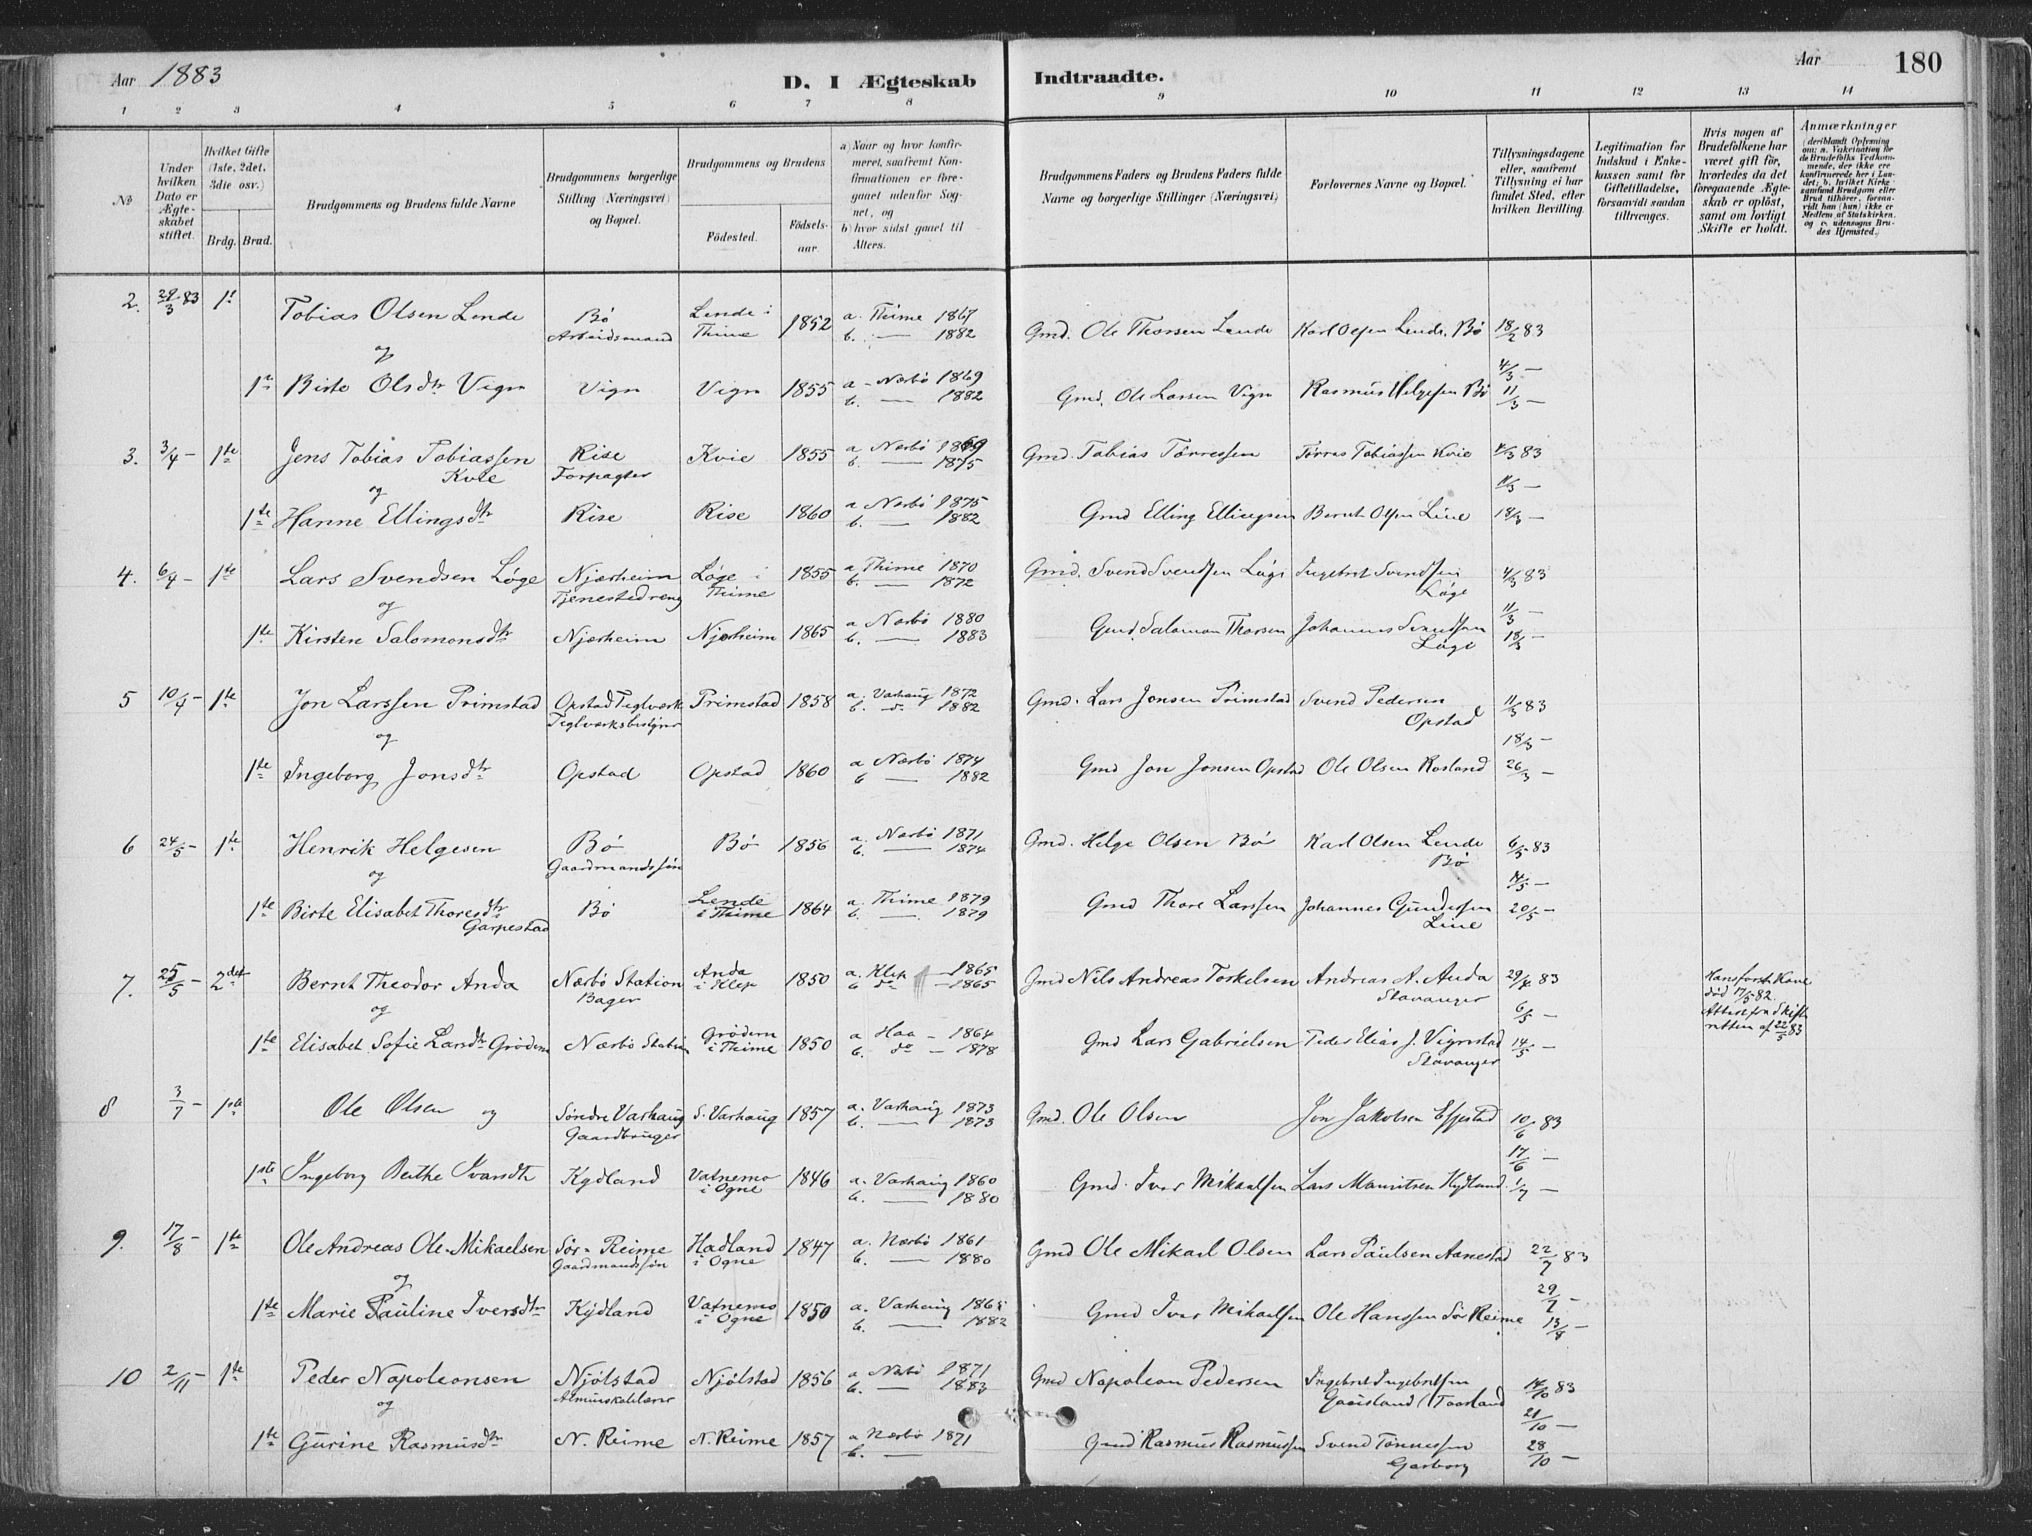 Aar 1883
D. I Ægteskab Indtraadte.
Aar
180
1 2 3 4 5 6 7 8 9 10 11 12 13 14
No
Under hvilken Dato er Ægteskabet stiftet.
Hvilket Gifte (1ste, 2det, 3die osv.)
Brdg. Brud.
Brudgommens og Brudens fulde Navne
Brudgommens borgerlige Stilling (Næringsvei) og Bopæl.
Brudgommens og Brudens
Fødested. Fødselsaar.
a) Naar og hvor konfirmeret, saafremt Konfirmationen er foregaaet udenfor Sognet, og
b) hvor sidst gaaet til Alters.
Brudgommens Faders og Brudens Faders fulde Navne og borgerlige Stillinger (Næringsvei)
Forlovernes Navne og Bopæl.
Tillysningsdagene eller, saafremt Tillysning ei har fundet Sted, efter hvilken Bevilling.
Legitimation for Indskud i Enkekassen samt for Giftetilladelse, forsaavidt saadan tiltrænges.
Hvis nogen af Brudefolkene har været gift før, hvorledes da det foregaaende Ægteskab er opløst, samt om lovligt Skifte er holdt.
Anmærkninger (deriblandt Oplysning om: a. Vakcination for de Brudefolks Vedkommende, der ikke ere konfirmerede her i Landet; b. hvilket Kirkesamfund Brudgom eller Brud tilhører, forsaavidt han (hun) ikke er Medlem af Statskirken, og c. udensogns Brudes Hjemsted.)
2. 29/3 83 1st Tobias Olsen Lende Bø Arbeidsmand Lende i Thime 1852 a. Thime 1867 b. — 1882 Gmd. Ole Thorsen Lende Karl Olsen Lende, Bø 18/2 83
og
4/3 —
1te Birte Olsdtr Vign Vign Vign 1855 a - Nærbø 1869 b. — 1882 Gmd. Ole Larsen Vign Rasmus Helgesen Bø 11/3 —
3. 3/4 — 1te Jens Tobias Tobiassen Kvie Rise Forpagter Kvie 1855 a Nærbø 1869 b. — 1875 Gmd. Tobias Tørressen Tørres Tobiassen Kvie 4/3 83
og
11/3 —
1te Hanne Ellingsdtr Rise Rise 1860 a Nærbø 1875 b. — 1882 Gmd Elling Ellingsen Bernt Olsen Line 18/3 —
4. 6/4 — 1te Lars Svendsen Løge Njærheim Tjenestedreng Løge i Thime 1855 a Thime 1870 b. — 1872 Gmd. Svend Svendsen Løge Ingebret Svendsen Løge 4/3 83
og
11/3 —
1te Kirsten Salomonsdtr Njærheim Njærheim 1865 a Nærbø 1880 b. — 1883 Gmd. Salomon Thorsen Johannes Svendsen Løge 18/3 —
5 10/4 — 1te Jon Larssen Primstad Opstad Teglværk Teglværksbestyrer Primstad 1858 a. Varhaug 1872 b. d. 1882 Gmd. Lars Jonsen Primstad Svend Pedersen Opstad 11/3 83
og
18/3 —
1te Ingeborg Jonsdtr Opstad Opstad 1860 a Nærbø 1874 b — 1882 Gmd Jon Jonsen Opstad Ole Olsen Rosland 26/3 —
6 24/5 — 1te Henrik Helgesen Bø Gaardmandssøn Bø 1856 a. Nærbø 1871 b. — 1874 Gmd. Helge Olsen Bø Karl Olsen Lende Bø 6/5 83
og
14/5 —
1te Birte Elisabet Thoresdtr Garpestad Bø Lende i Thime 1864 a. Thime 1879 b. — 1879 Gmd Thore Larssen Johannes Gundersen Line 20/5 —
7. 25/5 — 2det Bernt Theodor Anda Nærbø Station Bager Anda i Klep 1850 a. Klep — 1865 b do — 1865 Gmd Nils Andreas Torkelsen Andreas A. Anda Stavanger 29/4 83 Hans første Kone død 17/5 82. Attest fra Skifteretten af 22/5 83
og
6/5 —
1te Elisabet Sofie Larsdtr Grødem Nærbø Station Grødem i Thime 1850 a Haa — 1864 b. do — 1878 Gmd Lars Gabrielsen Peder Elias J. Vigrestad Stavanger 14/5 —
8 3/7 — 1ste Ole Olsen og Søndre Varhaug Gaardbruger S. Varhaug 1857 a. Varhaug 1873 b. — 1873 Gmd. Ole Olsen Jon Jakobsen Espestad 10/6 83
17/6 —
1ste Ingeborg Berthe Ivarsdtr Kydland Vatnemo i Ogne 1846 a. Varhaug 1860 b. — 1880 Gmd. Ivar Mikaelsen Lars Mauritsen Kydland 1/7 —
9. 17/8 — 1te Ole Andreas Ole-Mikaelsen Sør-Reime Gaardmandssøn Hadland i Ogne 1847 a. Nærbø 1861 b. — 1880 Gmd Ole Mikael Olsen Lars Paulsen Aanestad 22/7 83
og
29/7 —
1te Marie Pauline Iversdtr Kydland Vatnemo i Ogne 1850 a. Varhaug 1865 b. — 1882 Gmd Ivar Mikaelsen Ole Hanssen Sør Reime 13/8 —
10 2/11 — 1te Peder Napoleonsen Njølstad Almueskolelærer Njølstad 1856 a Nærbø 1871 b. — 1883 Gmd Napoleon Pedersen Ingebret Ingebretsen Gausland (Taarland 14/10 83
og
21/10 —
1te Gurine Rasmusdtr N. Reime N. Reime 1857 a Nærbø 1871 b. — Gmd Rasmus Rasmussen Svend Tønnessen Garborg 28/10 —